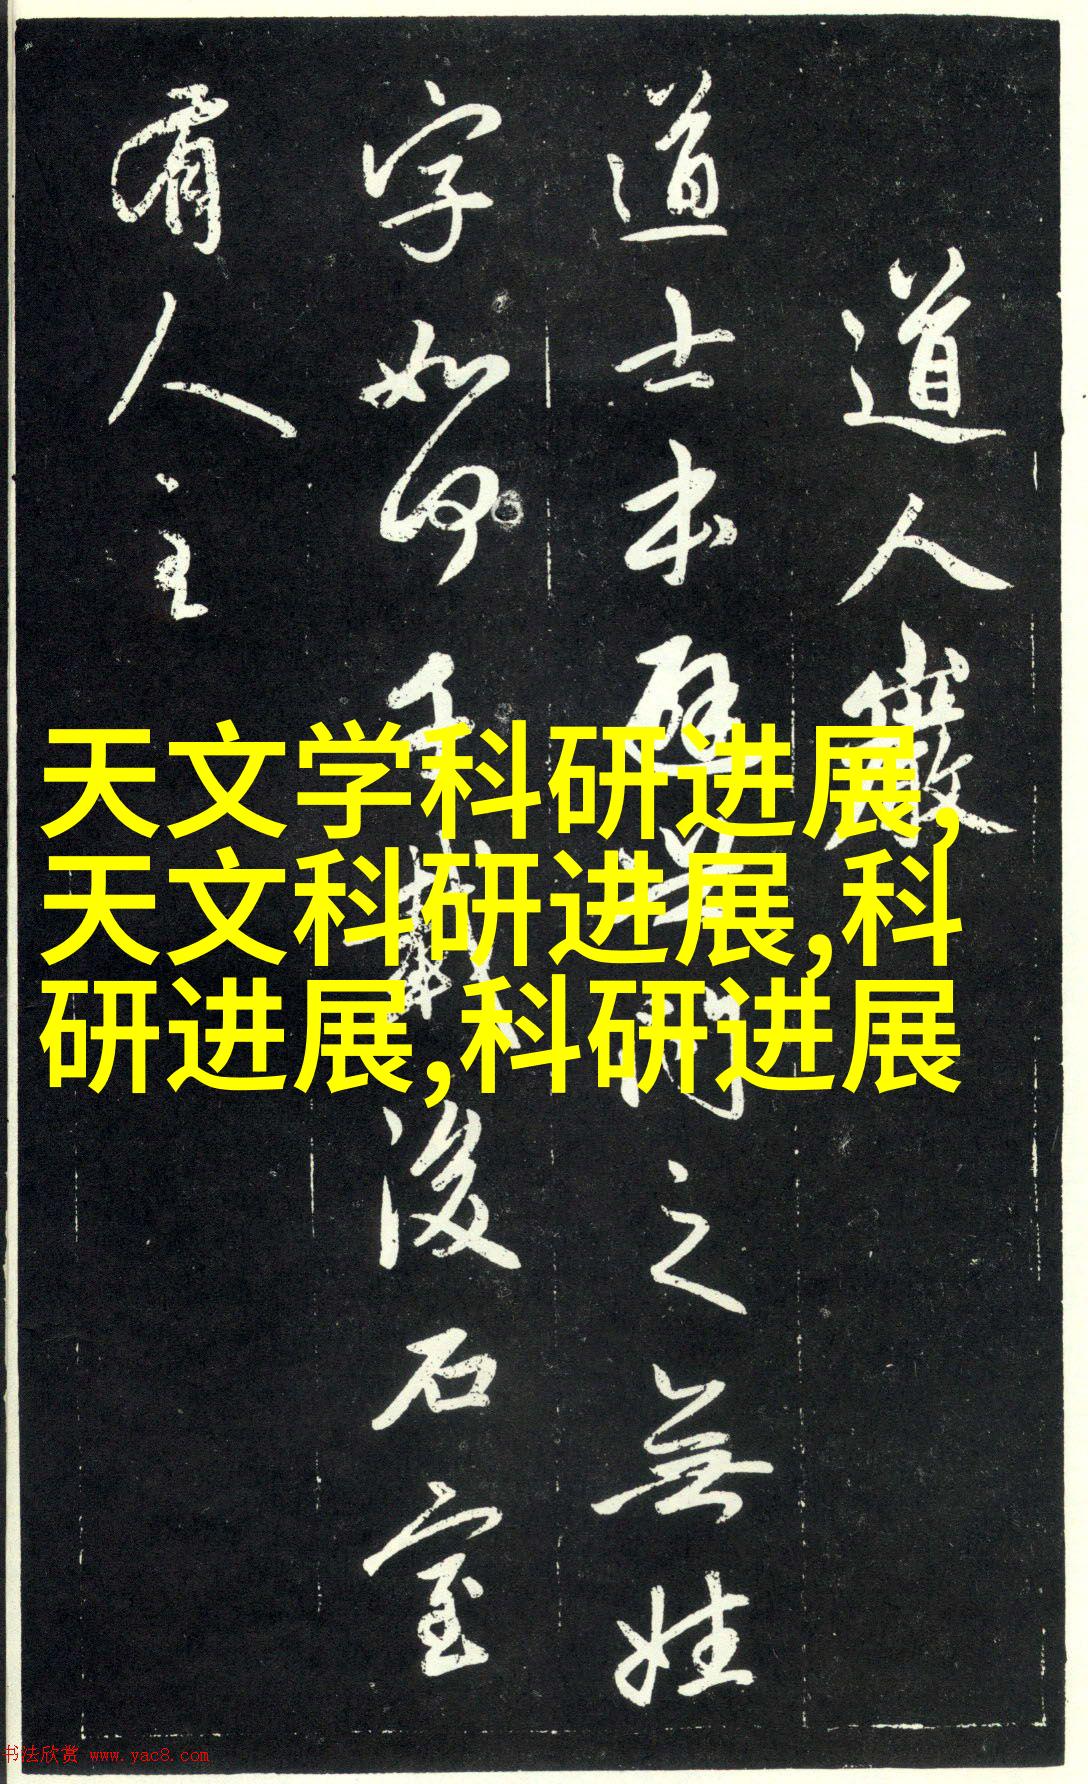 道人巖
道士本避世門之無姓
字如何千載後石室
有人主
天文学科研进展,
天文科研进展,科
研进展,科研进展
书法欣赏 www.yac8.com